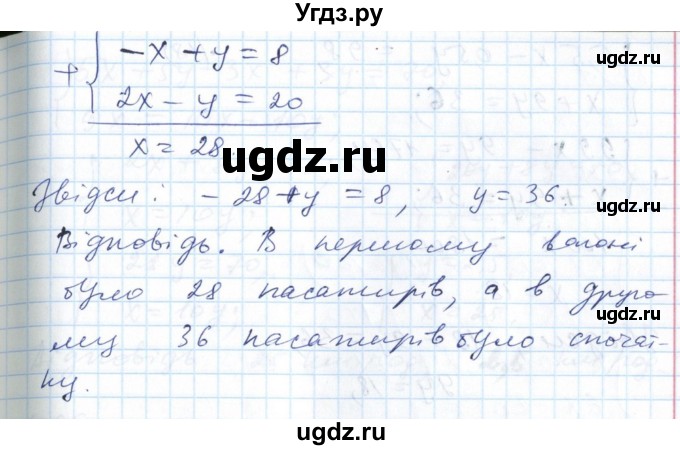 Угдз.ру
ugdz.ru
ugdz.ru
+ { -x + y = 8
2x - y = 20
x = 28
ugdz.ru
Звідси: - 28 + y = 8, y = 36.
Відповідь. В першому вагоні
було 28 пасажирів, а в друго
му 36 пасажирів було спочат-
ку.
ugdz.ru
ugdz.ru
ugdz.ru